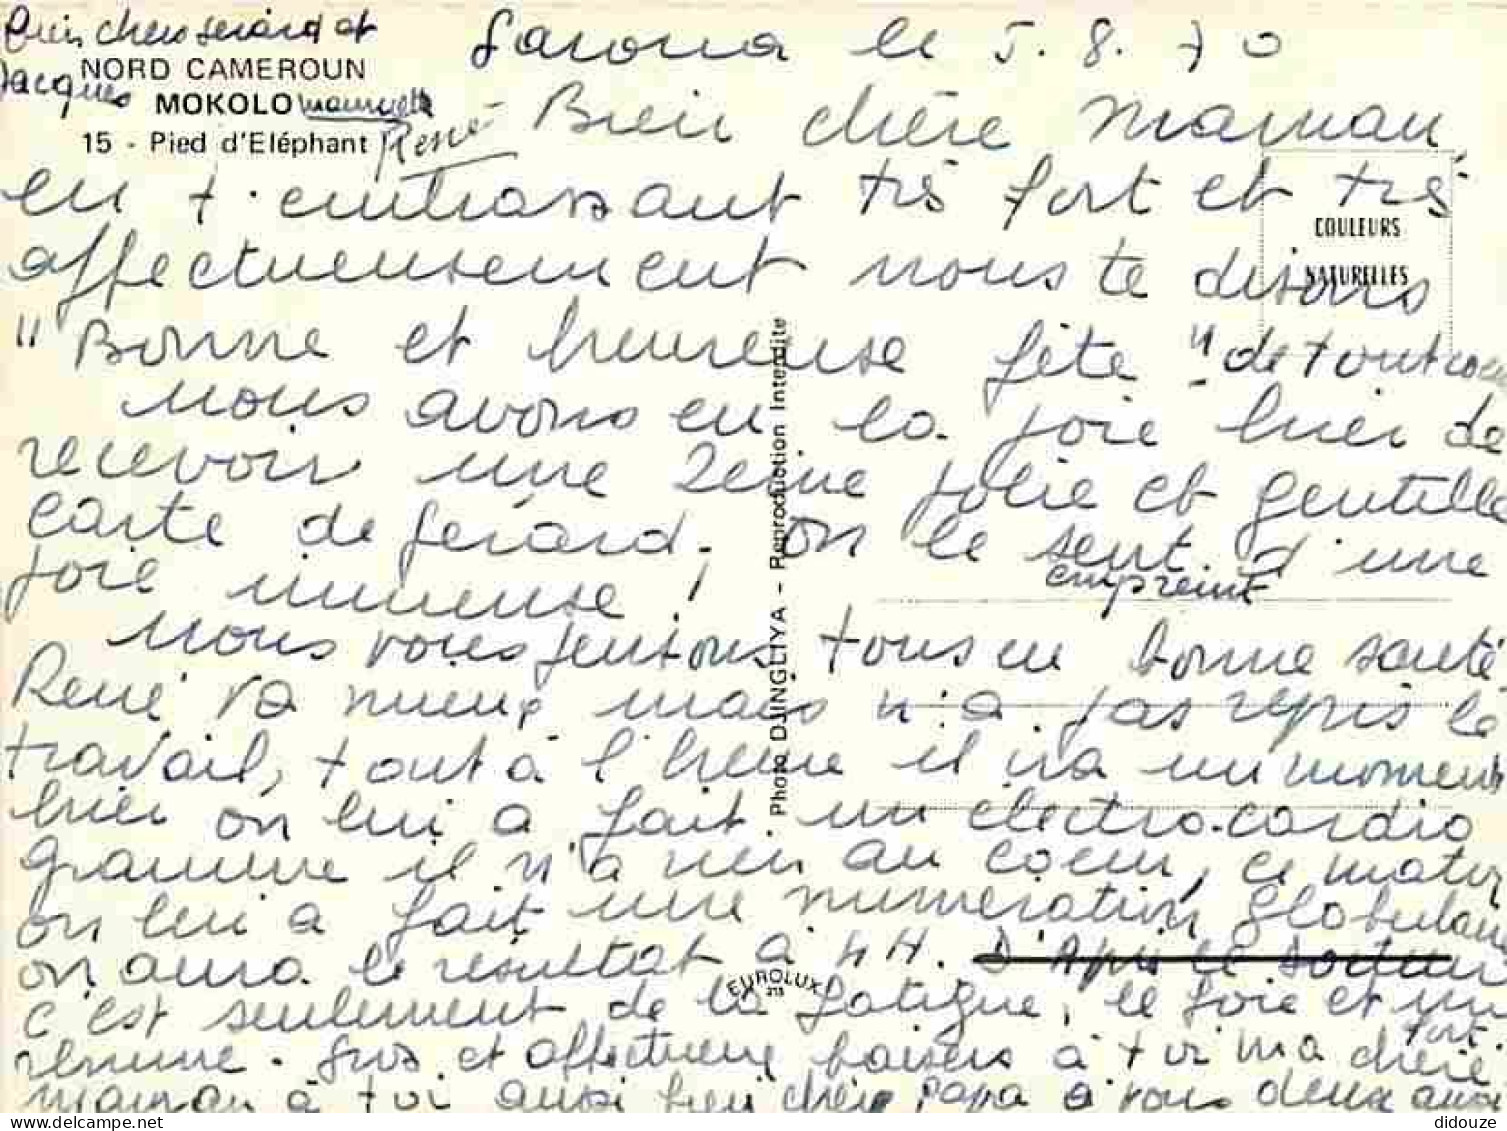 Garoua le 5.8.70
Bien chère maman,
en t'embrassant très fort et très
affectueusement nous te disons
"Bonne et heureuse fête" de tout coeur
nous avons eu la joie hier de
recevoir une 2eme jolie et gentille
carte de Gérard. On le sent
empreint d'une
joie immense !
nous vous sentons tous en bonne santé
René va mieux mais n'a pas repris le
travail, tout à l'heure il ira un moment
hier on lui a fait un électro-cardio
gramme il n'a rien au coeur, ce matin
on lui a fait une numération globulaire
on aura le résultat à 4H. D'Après le docteur
c'est seulement de la fatigue, le foie et un fort
rhume. Gros et affectueux baisers à toi ma chère
maman à toi aussi bien cher papa à vous deux aussi
bien chers Gérard et
Jacques
mamette
René
NORD CAMEROUN
MOKOLO
15 - Pied d'Eléphant
COULEURS
NATURELLES
Photo DJINGLIYA - Reproduction Interdite
EUROLUX
213
didouze